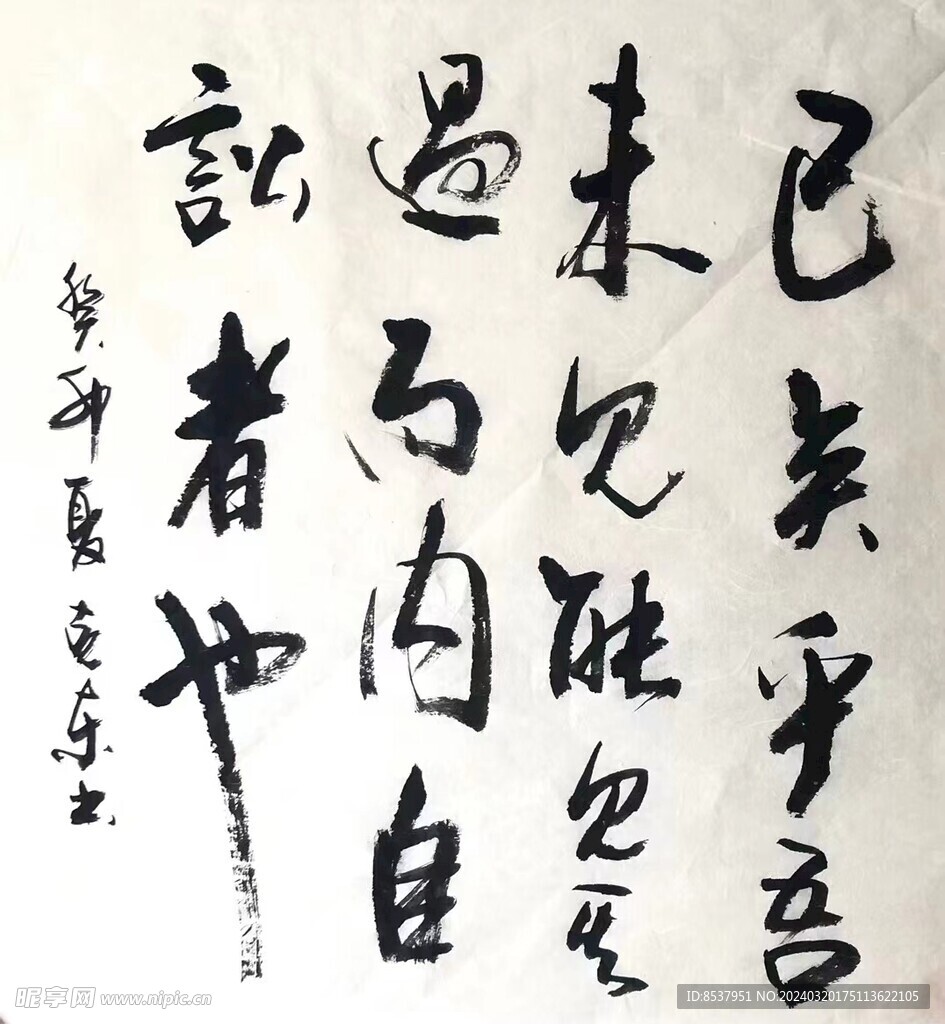 已矣乎吾
未見能見其
過而内自
訟者也
癸卯夏克东书
昵享网 www.nipic.cn
ID:8537951 NO:20240320175113622105